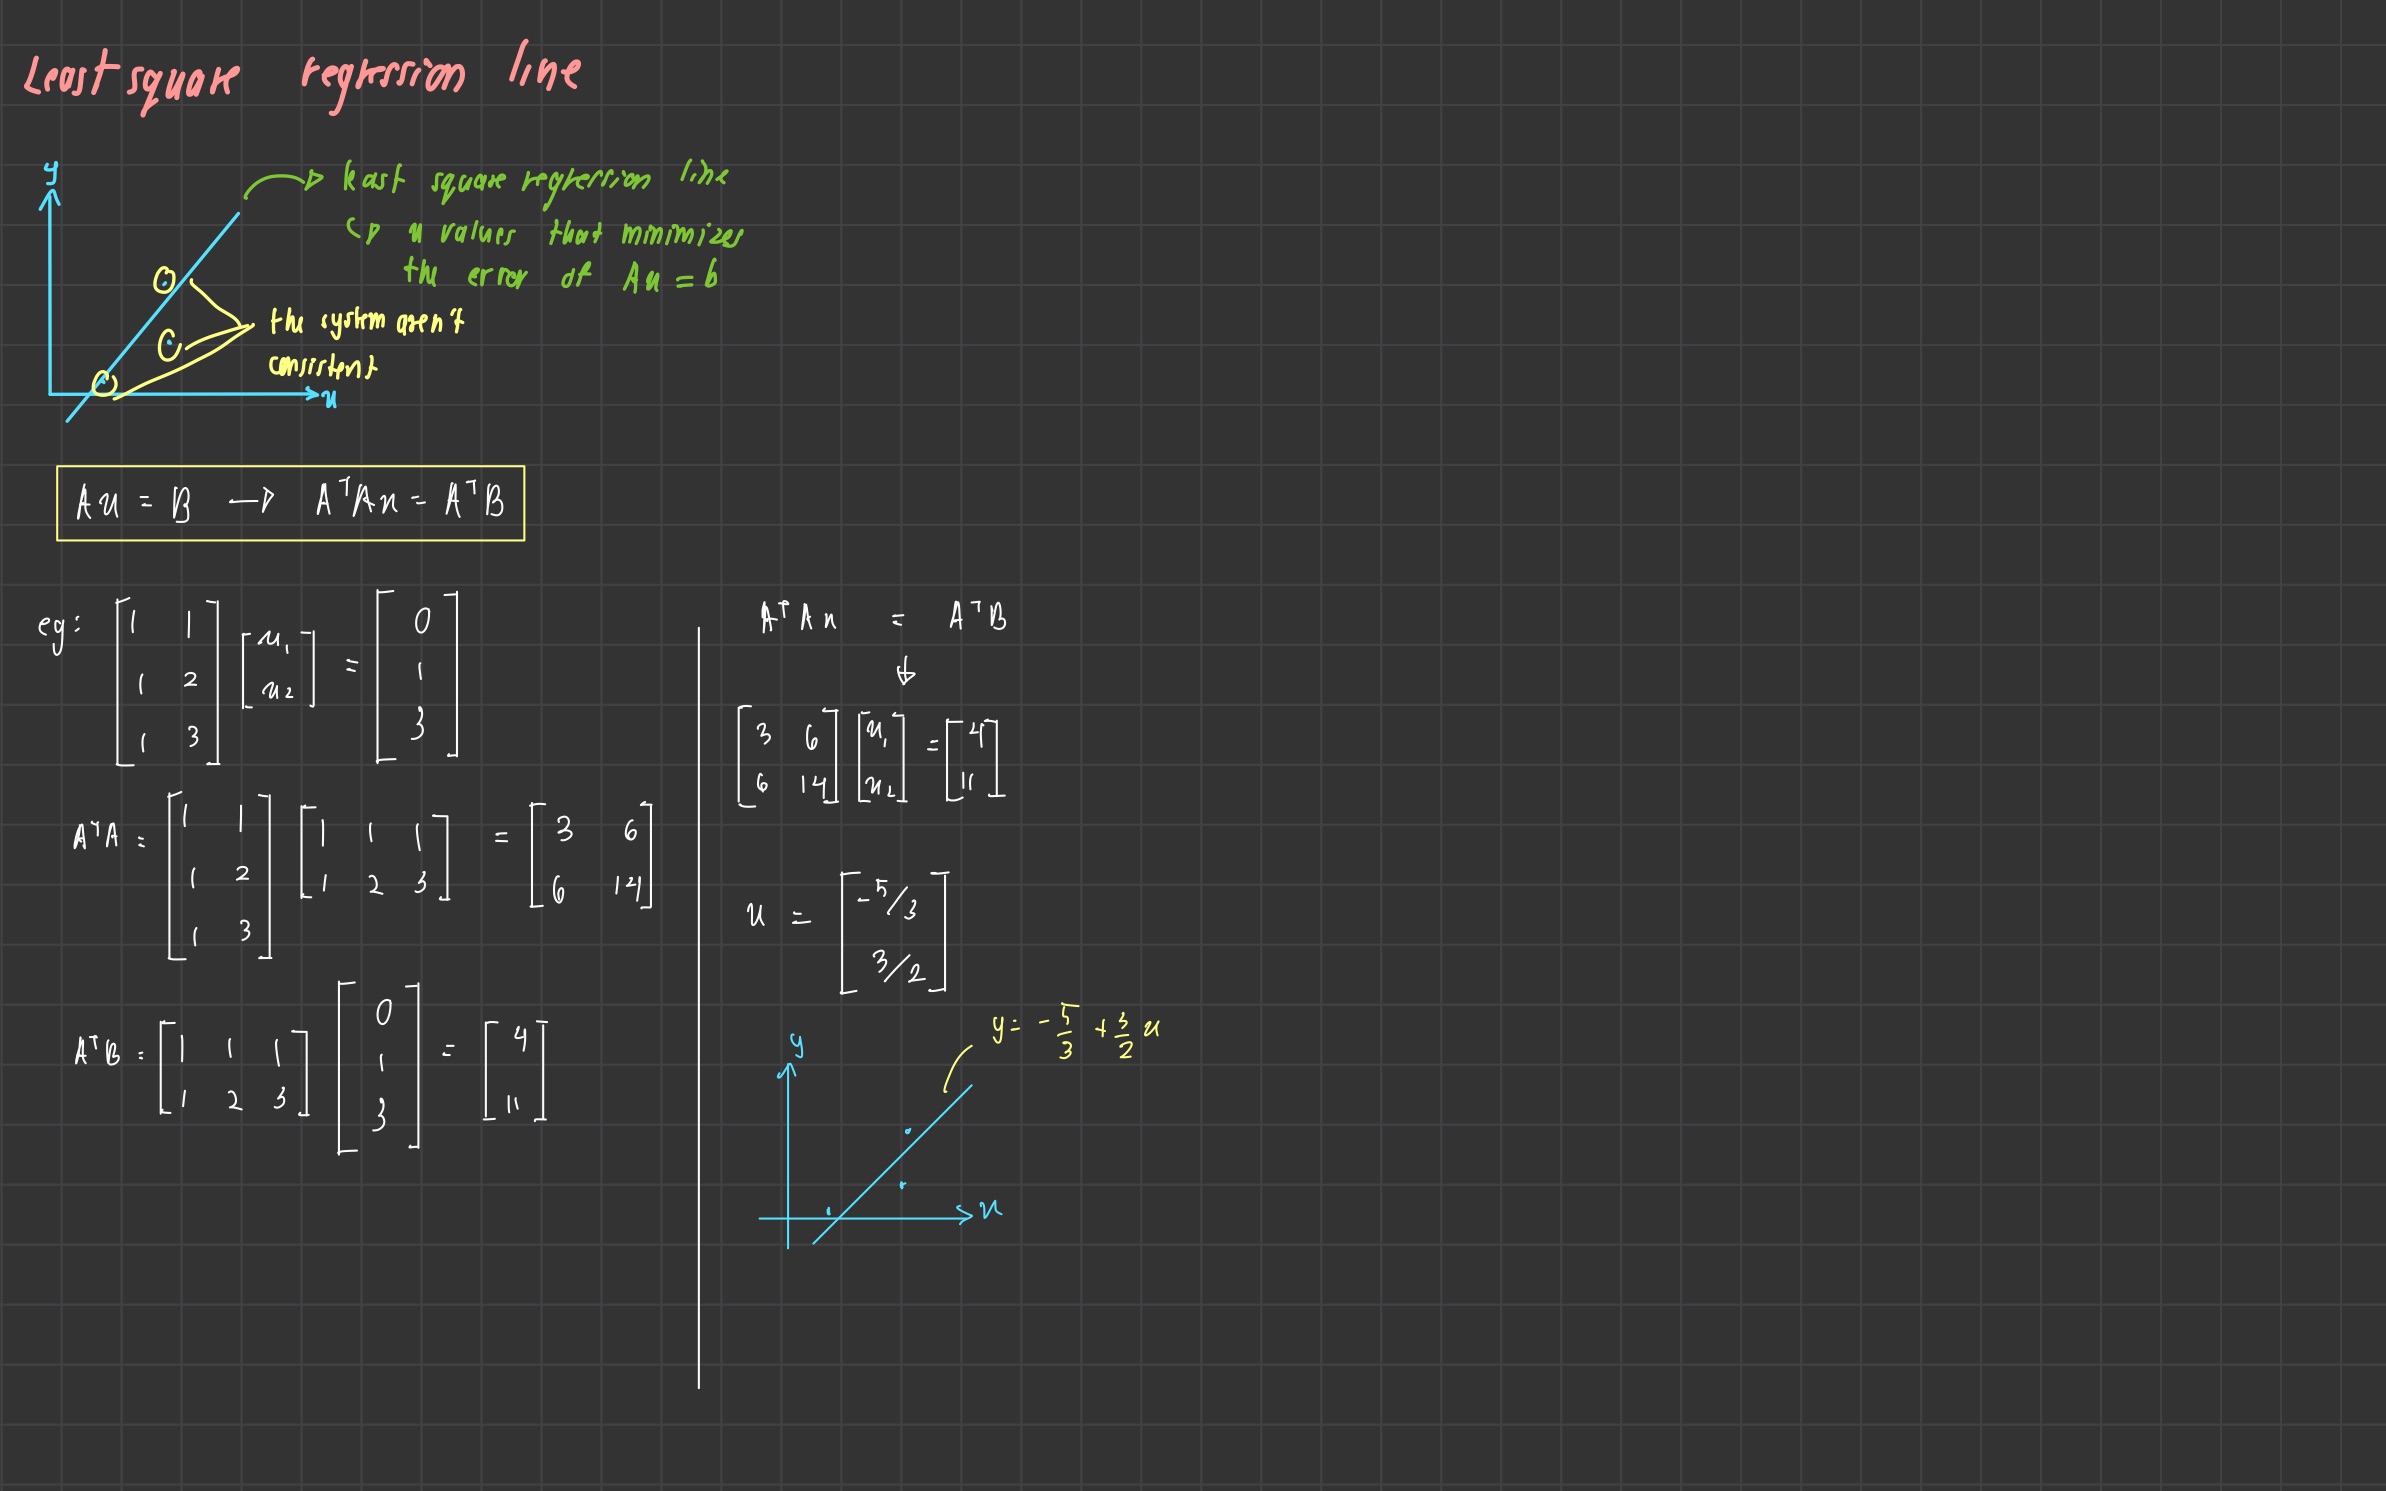 Least square regression line
y
least square regression line
x values that minimizes
the error of Ax = b
the system aren't
consistent
x
Ax = B → AᵀAx = AᵀB
eg: [1 1; 1 2; 1 3] [x₁; x₂] = [0; 1; 3]
AᵀA = [1 1; 1 2; 1 3] [1 1 1; 1 2 3] = [3 6; 6 14]
AᵀB = [1 1 1; 1 2 3] [0; 1; 3] = [4; 11]
AᵀAx = AᵀB
↓
[3 6; 6 14] [x₁; x₂] = [4; 11]
x = [-5/3; 3/2]
y = -5/3 + 3/2 x
y
x